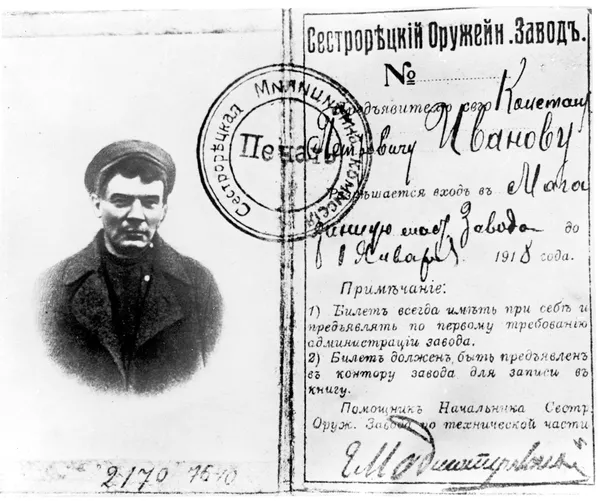 Сестрорѣцкій Оружейн. Заводъ.
№
Предъявителю сего Констант
Петровичу Иванову
Разрѣшается входъ въ Мага
зинную маст. Завода до
1 Января 1918 года.
Примѣчаніе:
1) Билетъ всегда имѣть при себѣ и
предъявлять по первому требованію
администраціи завода.
2) Билетъ долженъ быть предъявленъ
въ контору завода для записи въ
книгу.
Помощникъ Начальника Сестр.
Оруж. Завода по технической части
Сестрорѣцкая
Печать
2170 7510